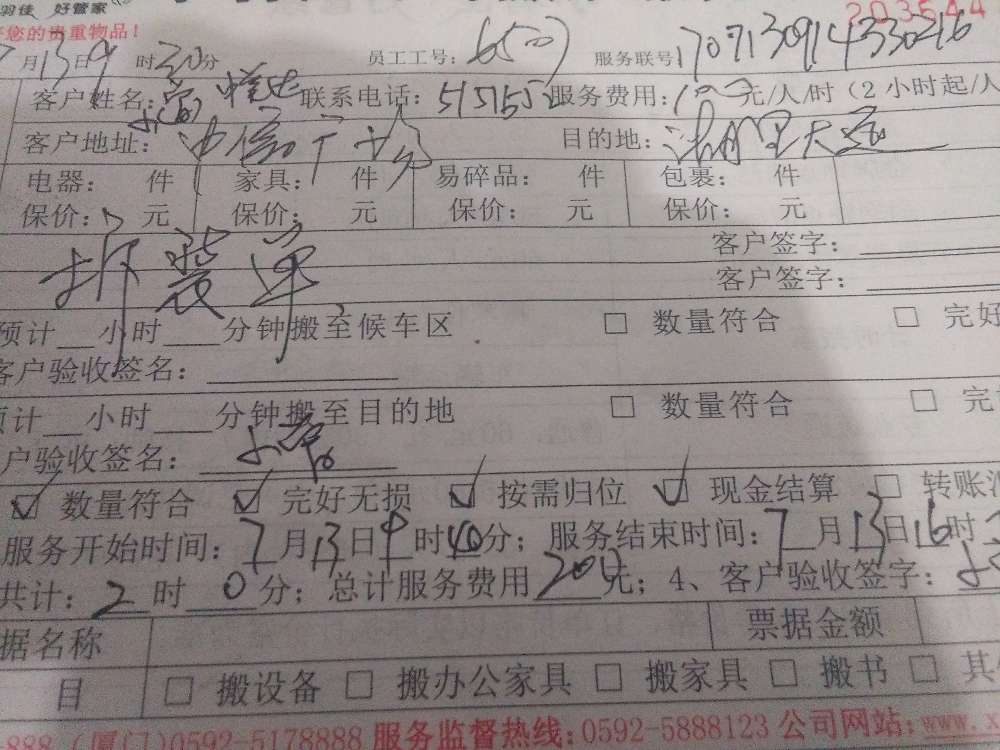 羽佳 好管家
203544
您的贵重物品！
月13日9时30分 员工工号：6500 服务联号1707130914330216
客户姓名： 联系电话：5155 服务费用：100元/人/时（2小时起/人
客户地址：广场 目的地：大
电器： 件 家具： 件 易碎品： 件 包裹： 件
保价： 元 保价： 元 保价： 元 保价： 元
拆装单
客户签字：
客户签字：
预计 小时 分钟搬至候车区 □ 数量符合 □ 完好
客户验收签名：
预计 小时 分钟搬至目的地 □ 数量符合 □ 完
户验收签名：
☑ 数量符合 ☑ 完好无损 ☑ 按需归位 ☑ 现金结算 □ 转账
服务开始时间：7月13日9时40分；服务结束时间：7月13日16时
共计：2时0分；总计服务费用200元；4、客户验收签字：
据名称 票据金额
目 □ 搬设备 □ 搬办公家具 □ 搬家具 □ 搬书 □ 其
888（厦门）0592-5178888 服务监督热线：0592-5888123 公司网站：www.x